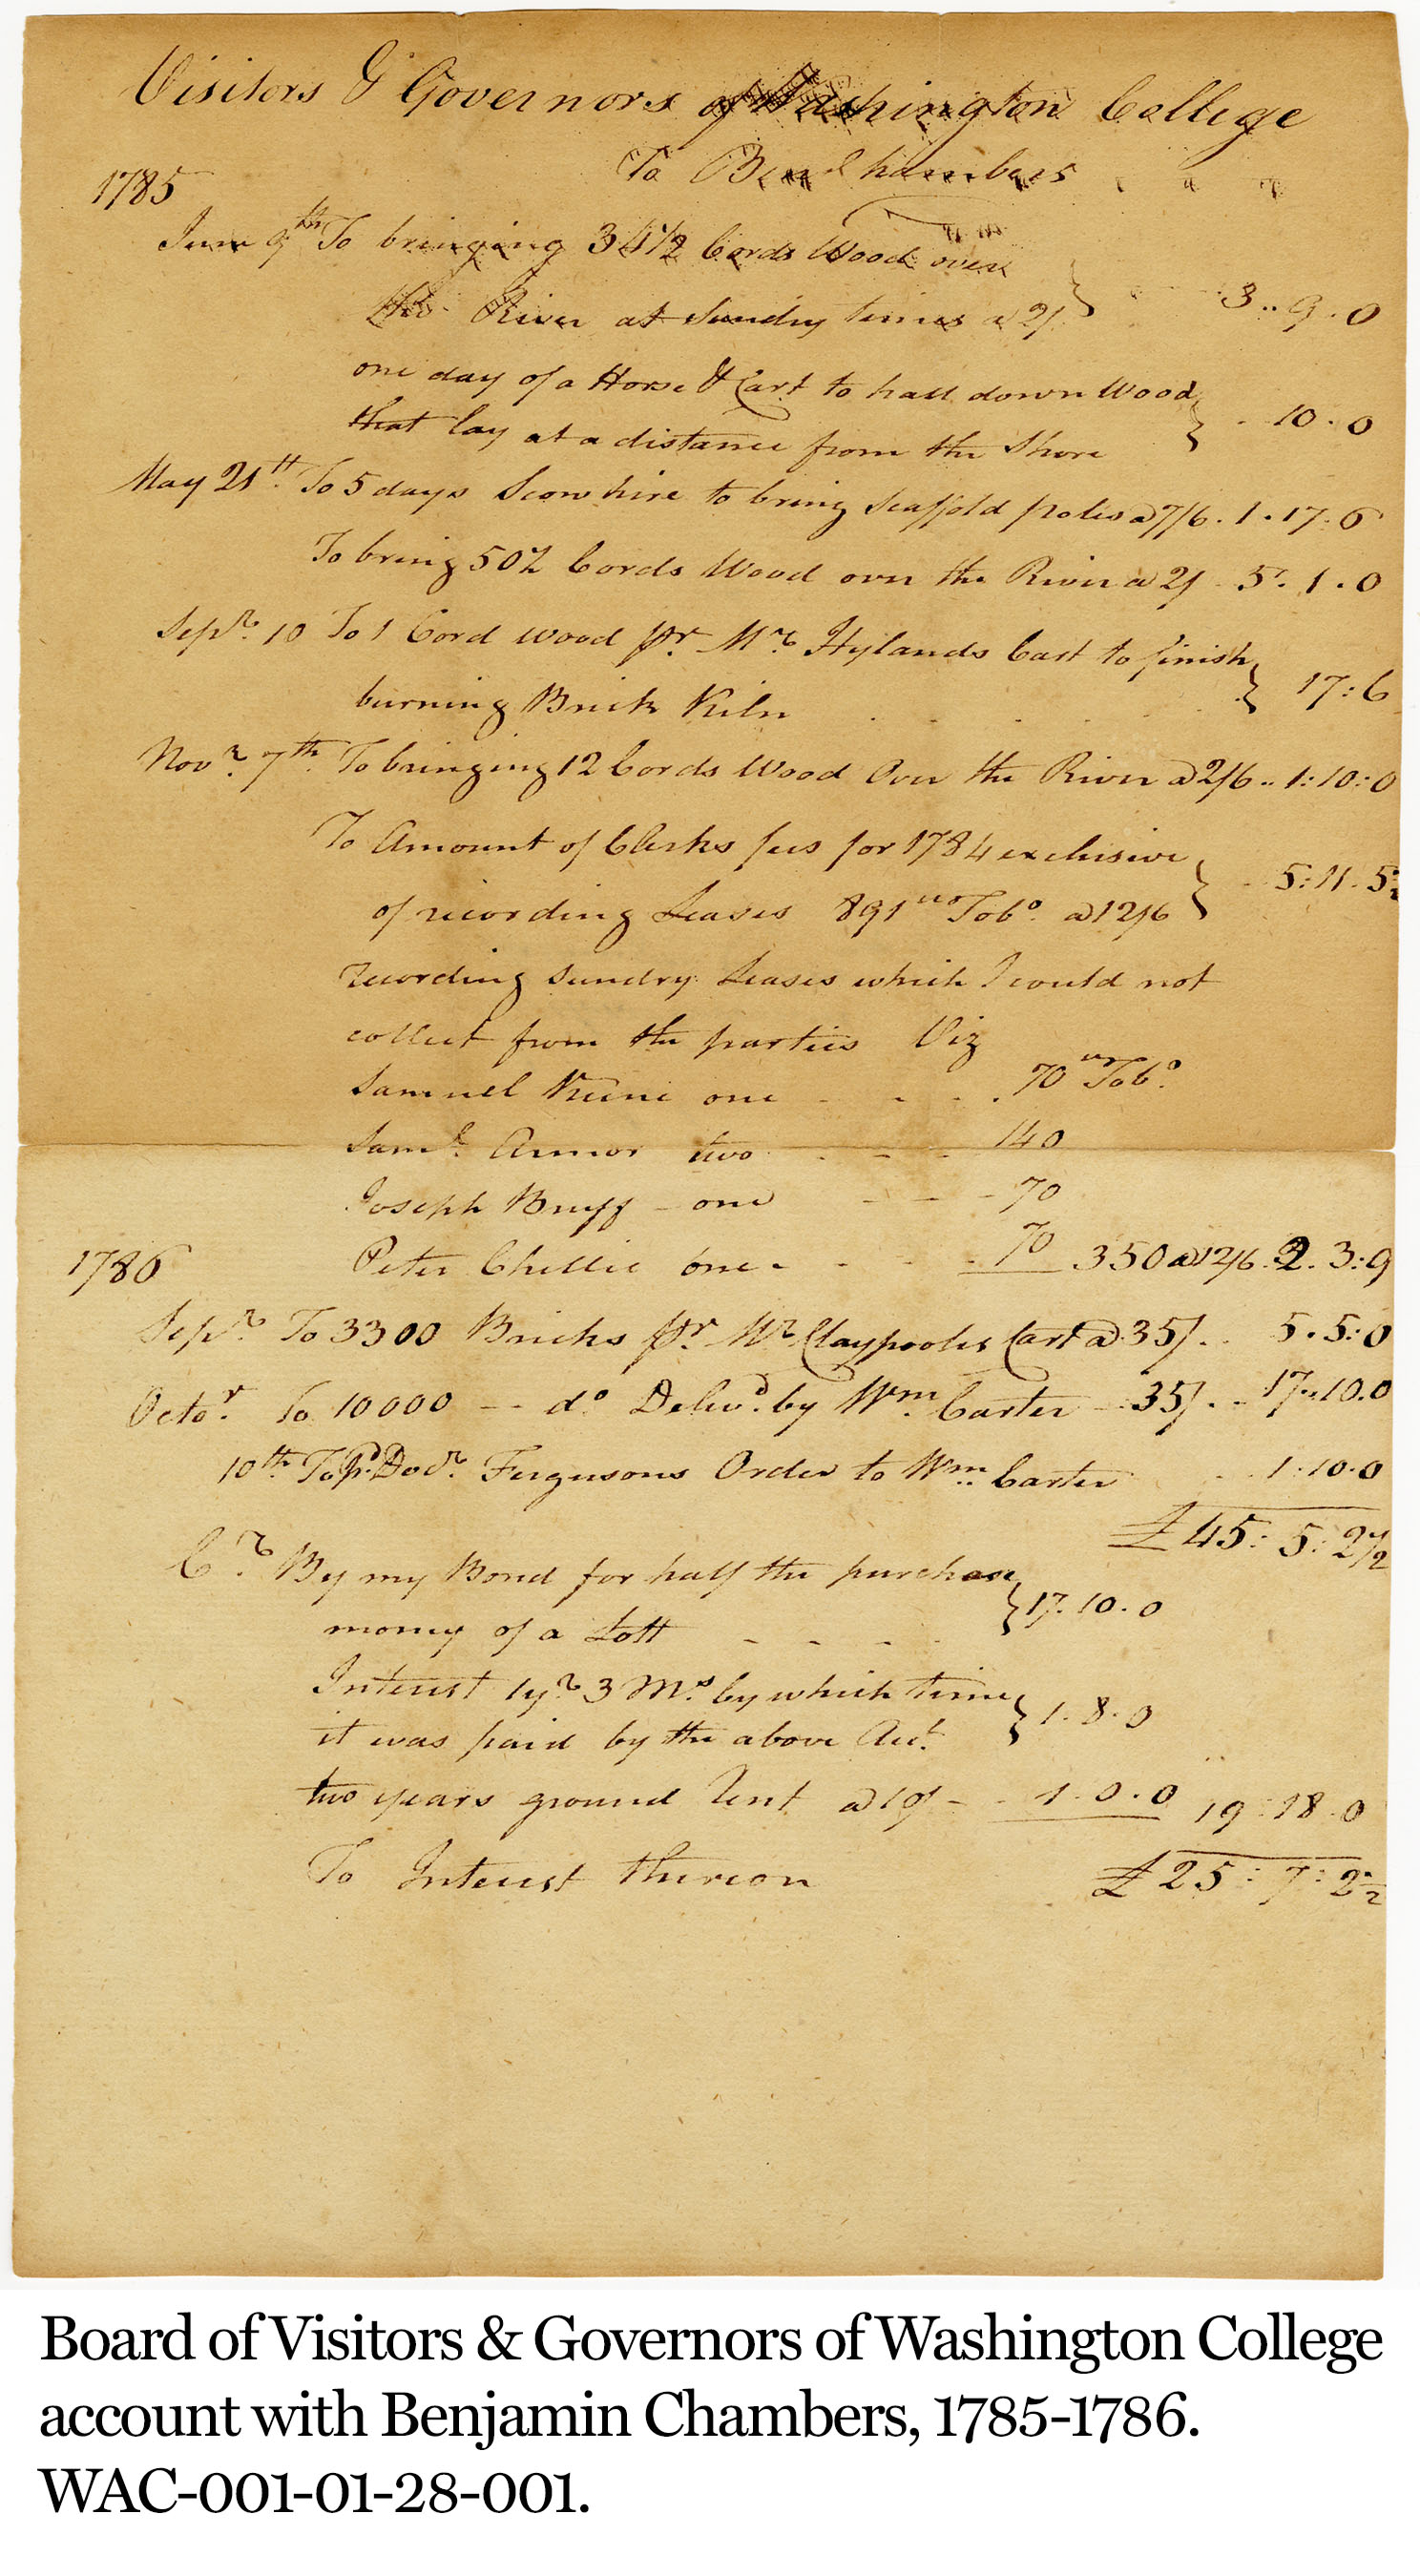 Visitors & Governors of Washington College
To Ben Chambers
1785
June 9th To bringing 34 1/2 Cords Wood over
the River at Sundry times a 2/ } 3 .. 9 . 0
one day of a Horse & Cart to hall down Wood
that lay at a distance from the Shore } 10 . 0
May 21st. To 5 days Scow hire to bring scaffold poles a 7/6 . 1 . 17 . 6
To bring 50 1/2 Cords Wood over the River a 2/ 5 . 1 . 0
Sepr. 10 To 1 Cord wood pr. Mr. Hylands Cart to finish
burning Brick Kiln } 17 : 6
Novr. 7th. To bringing 12 Cords Wood Over the River a 2/6 .. 1 : 10 : 0
To Amount of Clerks fees for 1784 exclusive
of recording Leases 891 Tobo. a 12/6 } 5 : 11 . 5 1/2
recording sundry Leases which I could not
collect from the parties Viz
Samuel Keene one - - - . 70 Tobo.
Saml. Armor two . - - 140
Joseph Bruff - one - - - 70
1786 Peter Chellie one - - - - 70 350 a 12/6 . 2 . 3 : 9
Sepr. To 3300 Bricks pr. Mr. Claypooles Cart a 35/ . . 5 . 5 : 0
Octor. To 10000 -- do Delivd. by Wm. Carter - 35/ . - 17 .. 10 . 0
10th. To pd. Docr. Fergusons Order to Wm. Carter 1 . 10 . 0
£ 45 : 5 : 2 1/2
Cr. By my Bond for half the purchase
money of a Lott - - - - } 17 . 10 . 0
Interest 1 yr. 3 Ms. by which time
it was paid by the above Act. } 1 . 8 . 0
two years ground Rent a 10/ - - 1 . 0 . 0 19 : 18 . 0
To Interest thereon £ 25 : 7 : 2 1/2
Board of Visitors & Governors of Washington College
account with Benjamin Chambers, 1785-1786.
WAC-001-01-28-001.